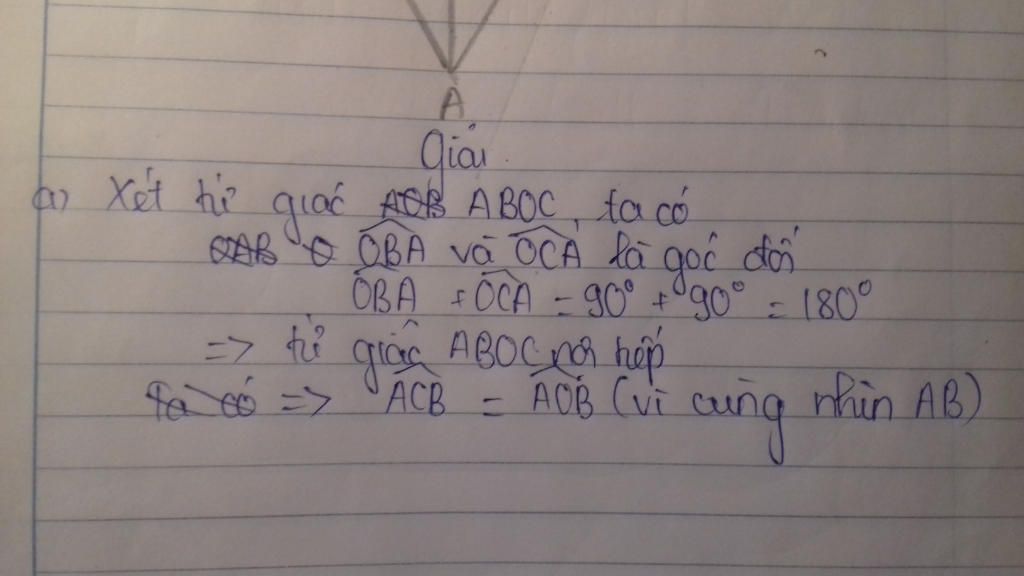 A
Giải
a) Xét tứ giác AOB ABOC, ta có
OAB O OBA và OCA là góc đối
OBA + OCA = 90° + 90° = 180°
=> tứ giác ABOC nội tiếp
ta có => ACB = AOB (vì cùng nhìn AB)